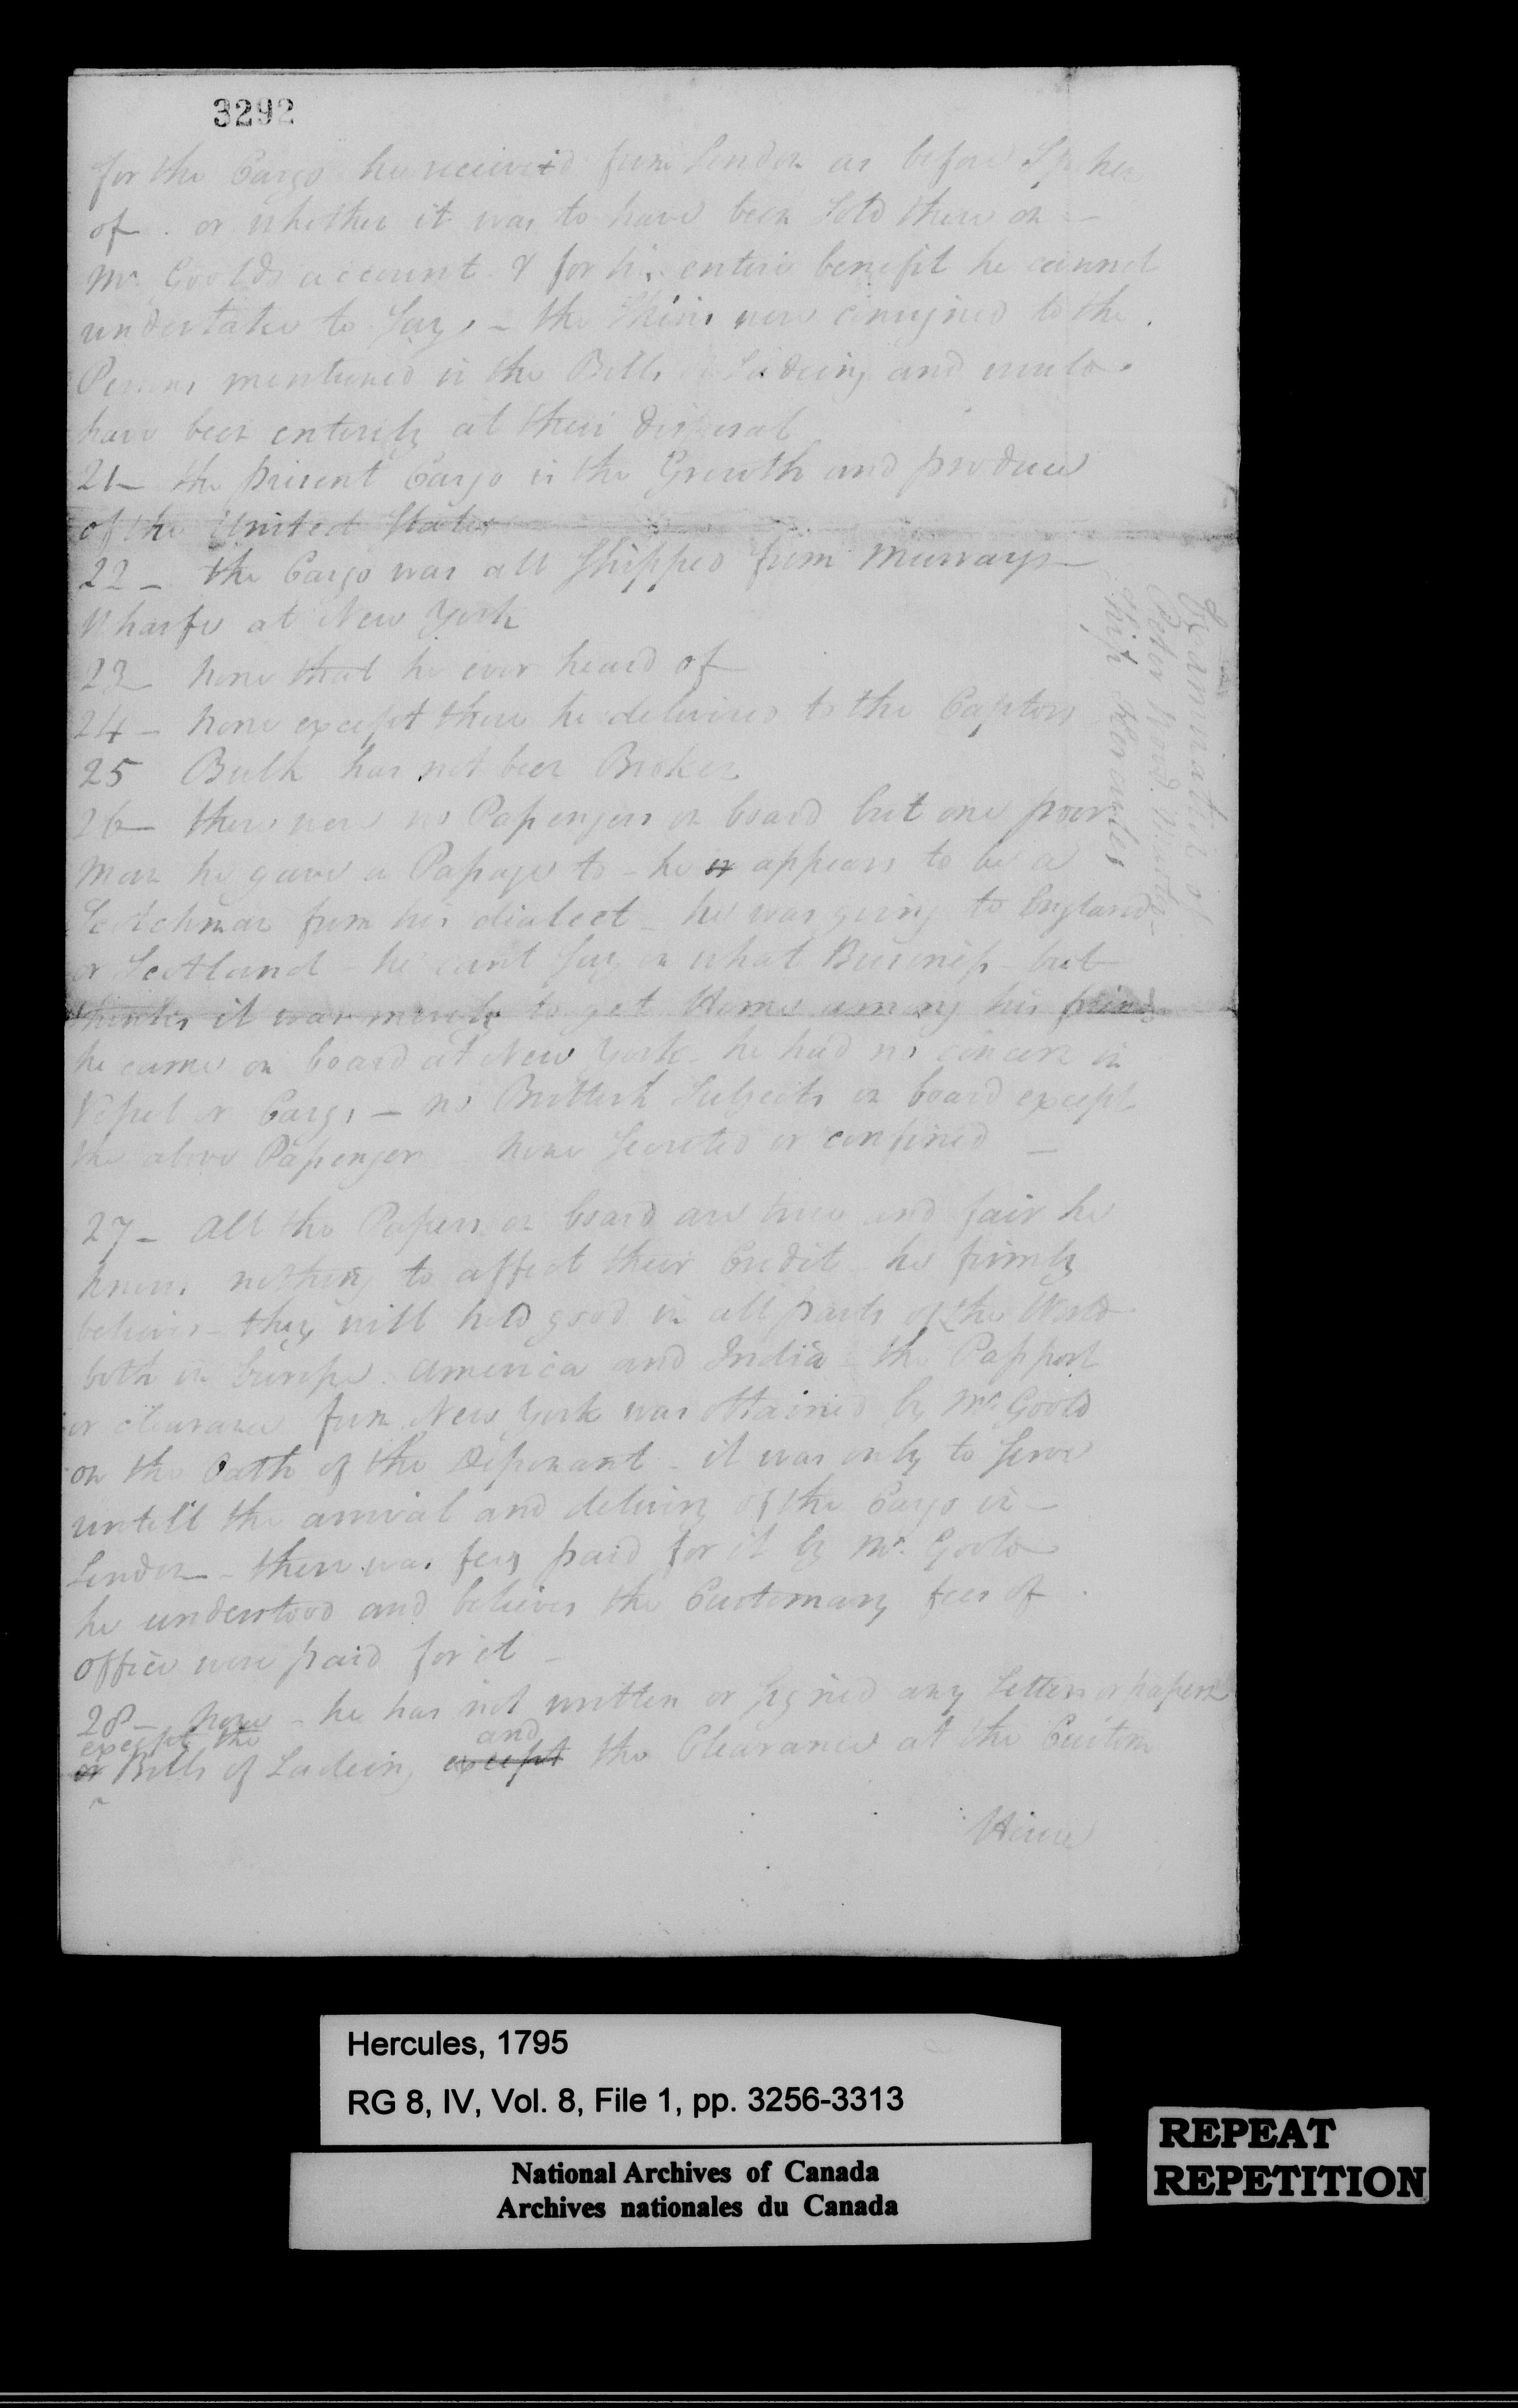 3292
for the Cargo he received from London as before Spoken
of . or whether it was to have been Sold there on —
Mr. Goolds account & for his entire benefit he cannot
undertake to Say, – the Skins were consigned to the
Persons mentioned in the Bills of Ladeing and would
have been entirely at their disposal
21 – the present Cargo is the Growth and produce
of the United States
22 – the Cargo was all Shipped from Murrays
Wharfe at New York
23 – none that he ever heard of
24 – none except those he delivered to the Captors
25 Bulk has not been Broken
26 – there were no Passengers on board but one poor
Man he gave a Passage to – he is appears to be a
Scotchman from his dialect – he was going to England
or Scotland – he cant Say on what Business – but
thinks it was merely to get Home among his friends
he came on board at New York – he had no concern in
Vessel or Cargo – no Brittish Subjects on board except
the above Passenger – none Secreted or confined —
27 – All the Papers on board are true and fair he
knows nothing to affect their Credit he firmly
believes – they will hold good in all parts of the World
both in Europe . America and India – the Passport
or clearance from New York was obtained by Mr. Goold
on the Oath of the Deponant – it was only to Serve
untill the arrival and delivery of the Cargo in –
London – there was fees paid for it by Mr. Goold
he understood and believes the Customary fees of
office were paid for it –
28 – none – he has not written or Signed any Letters or papers
except the and
or Bills of Ladeing except the Clearance at the Custom
House
Examination of
Peter Wood
Ship Hercules
Hercules, 1795
RG 8, IV, Vol. 8, File 1, pp. 3256-3313
National Archives of Canada
Archives nationales du Canada
REPEAT
REPETITION